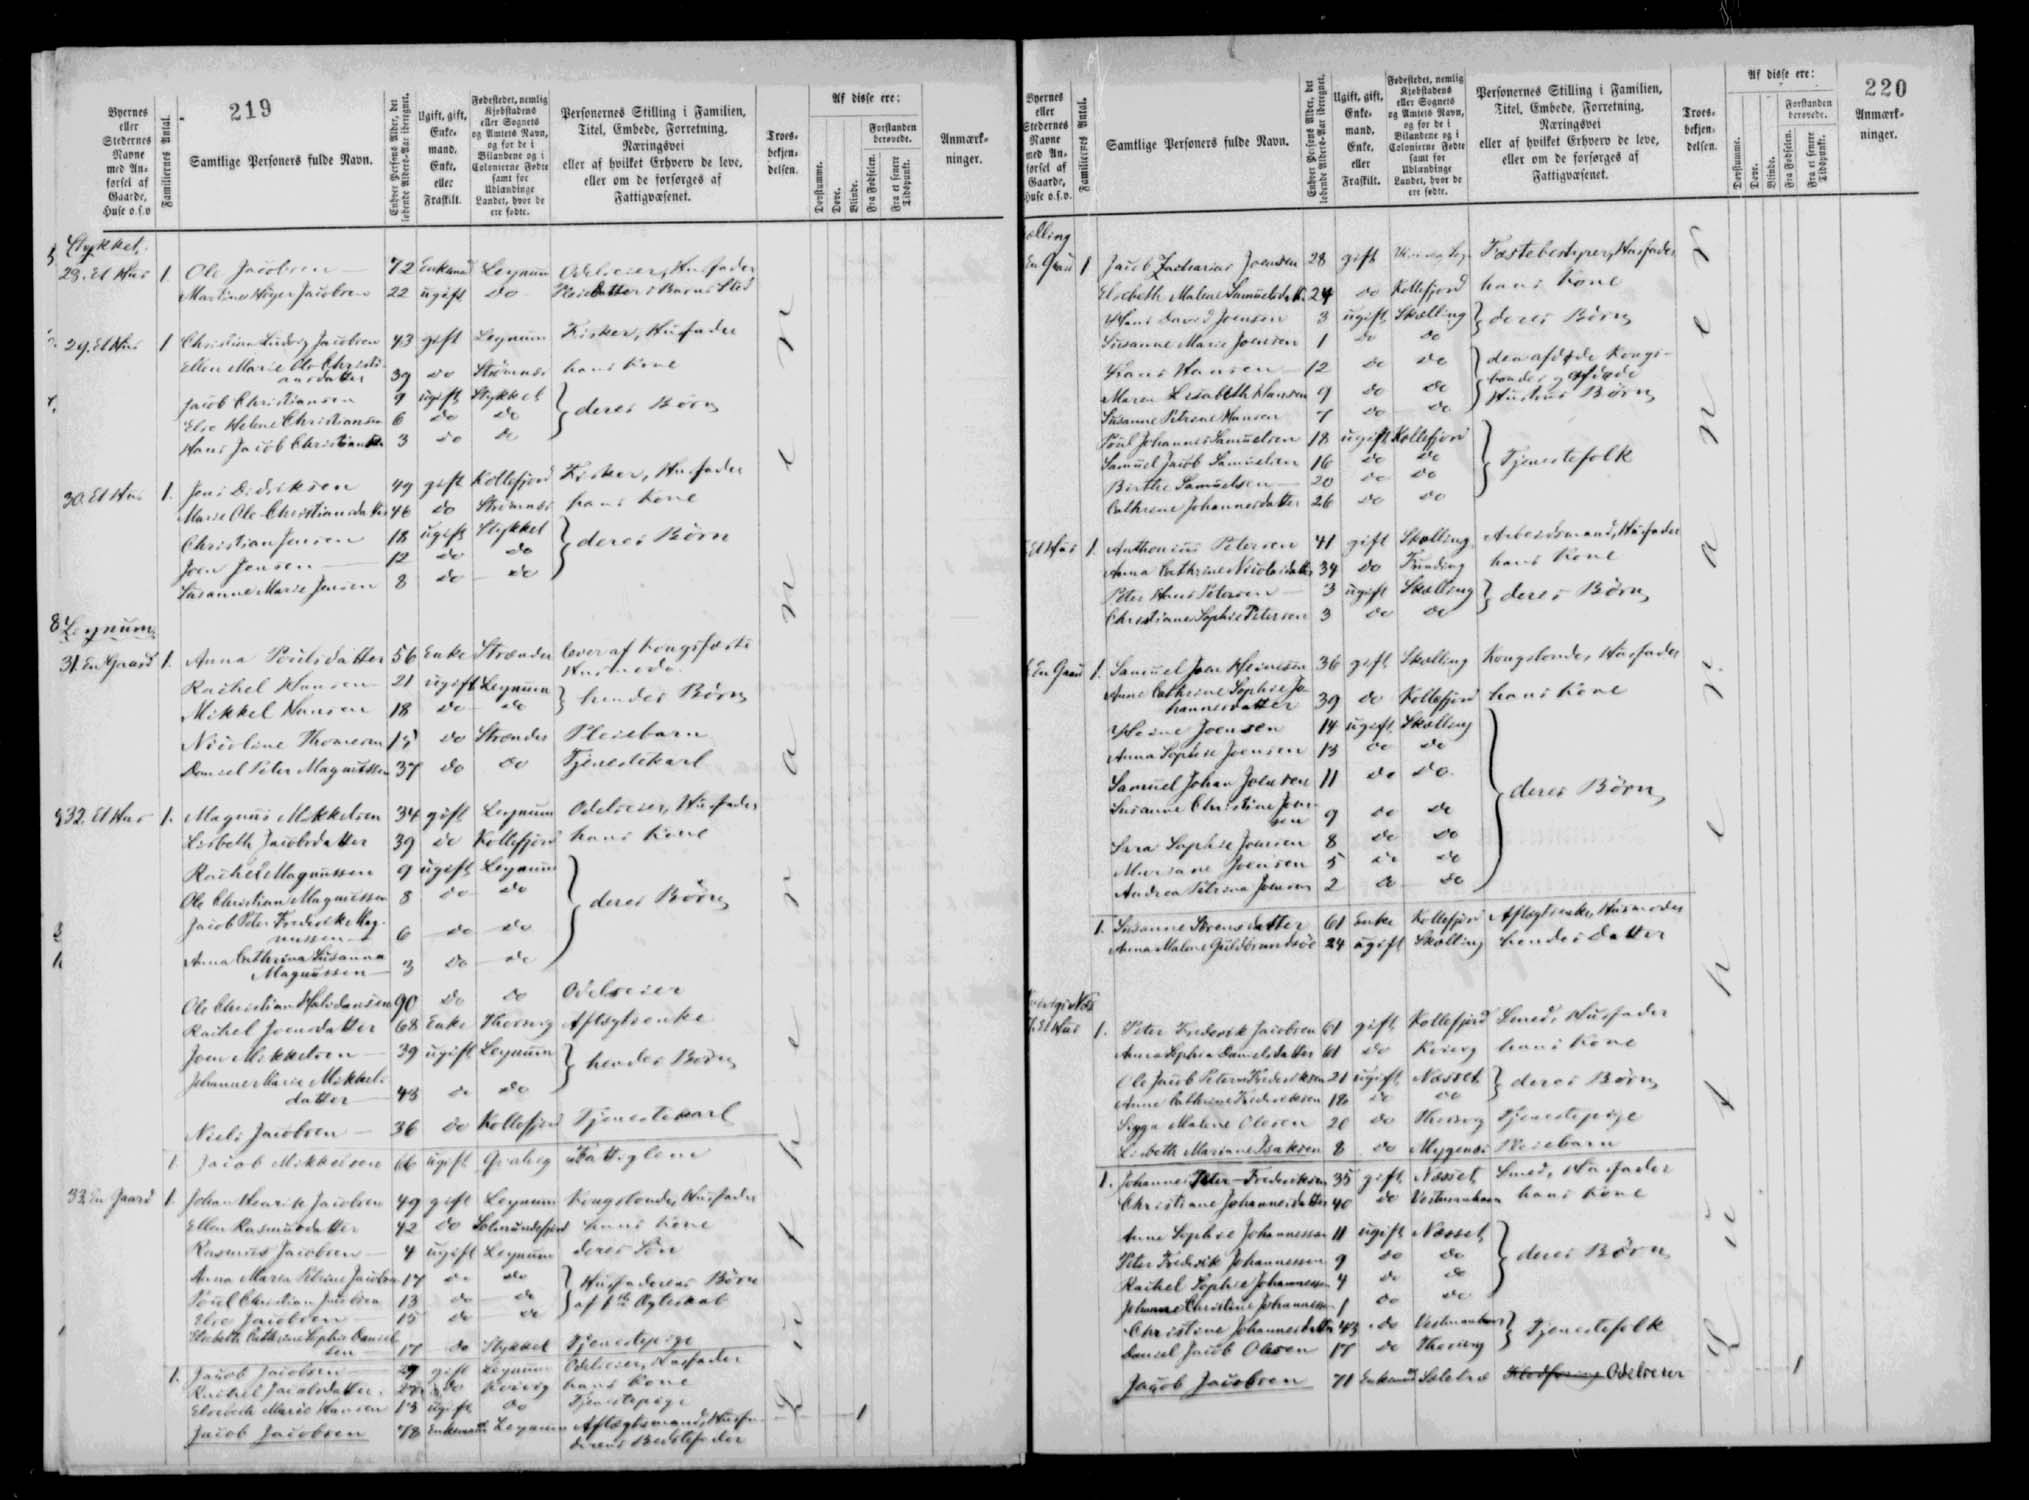 219
Byernes eller Stedernes Navne med Anførsel af Gaarde, Huse o.s.v
Familiernes Antal.
Samtlige Personers fulde Navn.
Enhver Persons Alder, det løbende Alders-Aar iberegnet.
Ugift, gift, Enkemand, Enke, eller Fraskilt.
Fødestedet, nemlig Kjøbstadens eller Sognets og Amtets Navn, og for de i Bilandene og i Colonierne Fødte samt for Udlændinge Landet, hvor de ere fødte.
Personernes Stilling i Familien, Titel, Embede, Forretning, Næringsvei eller af hvilket Erhverv de leve, eller om de forsørges af Fattigvæsenet.
Troesbekjendelsen.
Af disse ere:
Døvstumme.
Døve.
Blinde.
Forstanden berøvede.
Fra Fødselen.
Fra et senere Tidspunkt.
Anmærkninger.
Stykket.
28. Et Hus 1. Ole Jacobsen 72 Enkemand Leynum Odelseier, Husfader
Martines Høyer Jacobsen 22 ugift do
29. Et Hus 1 Christian Ludvig Jacobsen 43 gift Leynum Fisker, Husfader
Ellen Marie Ole Christiansdatter 39 do Strømnæs hans Kone
Jacob Christiansen 9 ugift Stykket } deres Børn
Else Helene Christiansen 6 do do
Hans Jacob Christiansen 3 do do
30. Et Hus 1. Jens Didriksen 49 gift Kollefjord Fisker, Husfader
Marie Ole Christiansdatter 46 do Strømnæs hans Kone
Christian Jensen 18 ugift Stykket } deres Børn
Joen Jensen 12 do do
Susanne Marie Jensen 8 do do
Leynum
31. En Gaard 1. Anna Poulsdatter 56 Enke Strænder lever af Kongsfæste Husmoder
Rachel Hansen 21 ugift Leynum } hendes Børn
Mikkel Hansen 18 do do
Nicoline Thomsen 15 do Strænder Pleiebarn
Daniel Peter Magnussen 37 do do Tjenestekarl
32. Et Hus 1. Magnus Mikkelsen 34 gift Leynum Odelseier, Husfader
Lisbeth Jacobsdatter 39 do Kollefjord hans Kone
Rachel Magnussen 9 ugift Leynum } deres Børn
Ole Christian Magnussen 8 do do
Jacob Peter Frederik Magnussen 6 do do
Anna Cathrina Susanna Magnussen 3 do do
Ole Christian Halvdansen 90 do do Odelseier
Rachel Joensdatter 68 Enke Thorsvig Aftægtsenke
Joen Mikkelsen 39 ugift Leynum } hendes Børn
Johanne Marie Mikkelsdatter 43 do do
Niels Jacobsen 36 do Kollefjord Tjenestekarl
1. Jacob Mikkelsen 66 ugift Qvalvig Fattiglem
33. En Gaard 1. Johan Henrik Jacobsen 49 gift Leynum Kongsbonde, Husfader
Ellen Rasmusdatter 42 do Solmundefjord hans Kone
Rasmus Jacobsen 4 ugift Leynum deres Søn
Anna Maria Petrine Jacobsen 17 do do } Husfaderens Børn af 1ste Ægteskab
Poul Christian Jacobsen 13 do do
Else Jacobsen 15 do do
Elsebeth Cathrine Sophie Danielsen 17 do Stykket Tjenestepige
1. Jacob Jacobsen 29 gift Leynum Odelseier, Husfader
Rachel Jacobsdatter do Kvivig hans Kone
Elsebeth Marie Hansen 13 ugift do Tjenestepige
Jacob Jacobsen 78 Enkemand Leynum Aftægtsmand, Husfaderens Bedstefader 1
Lutheranere
220
Byernes eller Stedernes Navne med Anførsel af Gaarde, Huse o.s.v.
Familiernes Antal.
Samtlige Personers fulde Navn.
Enhver Persons Alder, det løbende Alders-Aar iberegnet.
Ugift, gift, Enkemand, Enke, eller Fraskilt.
Fødestedet, nemlig Kjøbstadens eller Sognets og Amtets Navn, og for de i Bilandene og i Colonierne Fødte samt for Udlændinge Landet, hvor de ere fødte.
Personernes Stilling i Familien, Titel, Embede, Forretning, Næringsvei eller af hvilket Erhverv de leve, eller om de forsørges af Fattigvæsenet.
Troesbekjendelsen.
Af disse ere:
Døvstumme.
Døve.
Blinde.
Forstanden berøvede.
Fra Fødselen.
Fra et senere Tidspunkt.
Anmærkninger.
ælling
En Gaard 1 Jacob Zacharias Joensen 28 gift Fæstebestyrer, Husfader
Elsebeth Malene Samuelsdatter 24 do Kollefjord hans Kone
Hans David Joensen 3 ugift Skælling } deres Børn
Susanne Marie Joensen 1 do do
Hans Hansen 12 do do } den afdøde Kongsbondes og afdøde Hustrus Børn
Maren Lisabeth Hansen 9 do do
Susanne Petrine Hansen 7 do do
Poul Johannes Samuelsen 18 ugift Kollefjord } Tjenestefolk
Samuel Jacob Samuelsen 16 do do
Birthe Samuelsen 20 do do
Cathrine Johannesdatter 26 do do
Et Hus 1. Anthonius Petersen 41 gift Skælling Arbeidsmand, Husfader
Anna Cathrine Nicolaidatter 34 do Funding hans Kone
Peter Hans Petersen 3 ugift Skælling } deres Børn
Christiane Sophie Petersen 3 do do
En Gaard 1. Samuel Joen Heinesen 36 gift Skælling Kongsbonde, Husfader
Anne Cathrine Sophie Johannesdatter 39 do Kollefjord hans Kone
Heine Joensen 14 ugift Skælling } deres Børn
Anna Sophie Joensen 13 do do
Samuel Johan Joensen 11 do do
Susanne Christine Joensen 9 do do
Sara Sophie Joensen 8 do do
Mariane Joensen 5 do do
Andrea Petrina Joensen 2 do do
1. Susanne Sørensdatter 61 Enke Kollefjord Aftægtsenke, Husmoder
Anna Malene Guldbrandsøe 24 ugift Skælling hendes Datter
Et Hus 1. Peter Frederik Jacobsen 61 gift Kollefjord Smed, Husfader
Anna Sophia Danielsdatter 61 do Kvivig hans Kone
Ole Jacob Petersen Frederiksen 21 ugift Næsset } deres Børn
Anne Cathrine Frederiksen 18 do do
Sigga Malene Olesen 20 do Thorsvig Tjenestepige
Lisbeth Mariane Isaksen 8 do Myggenæs Pleiebarn
1. Johannes Peter Frederiksen 35 gift Næsset Smed, Husfader
Christiane Johannesdatter 40 do Vestmanhavn hans Kone
Anne Sophie Johannessen 11 ugift Næsset } deres Børn
Peter Frederik Johannessen 9 do do
Rachel Sophie Johannessen 4 do do
Johanne Christine Johannessen 1 do do
Christine Johannesdatter 43 do Vestmanhavn } Tjenestefolk
Daniel Jacob Olesen 17 do Thorsvig
Jacob Jacobsen 71 Enkemand Odelseier 1
Lutheranere